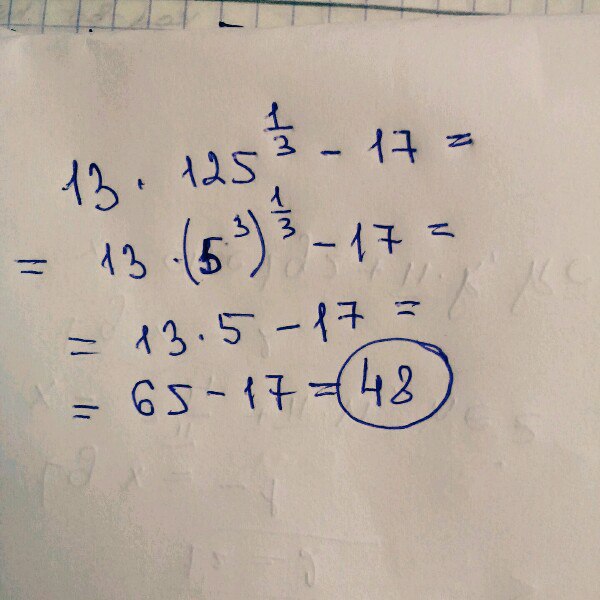 13 · 125^{1/3} - 17 =
= 13 · (5^3)^{1/3} - 17 =
= 13 · 5 - 17 =
= 65 - 17 = 48